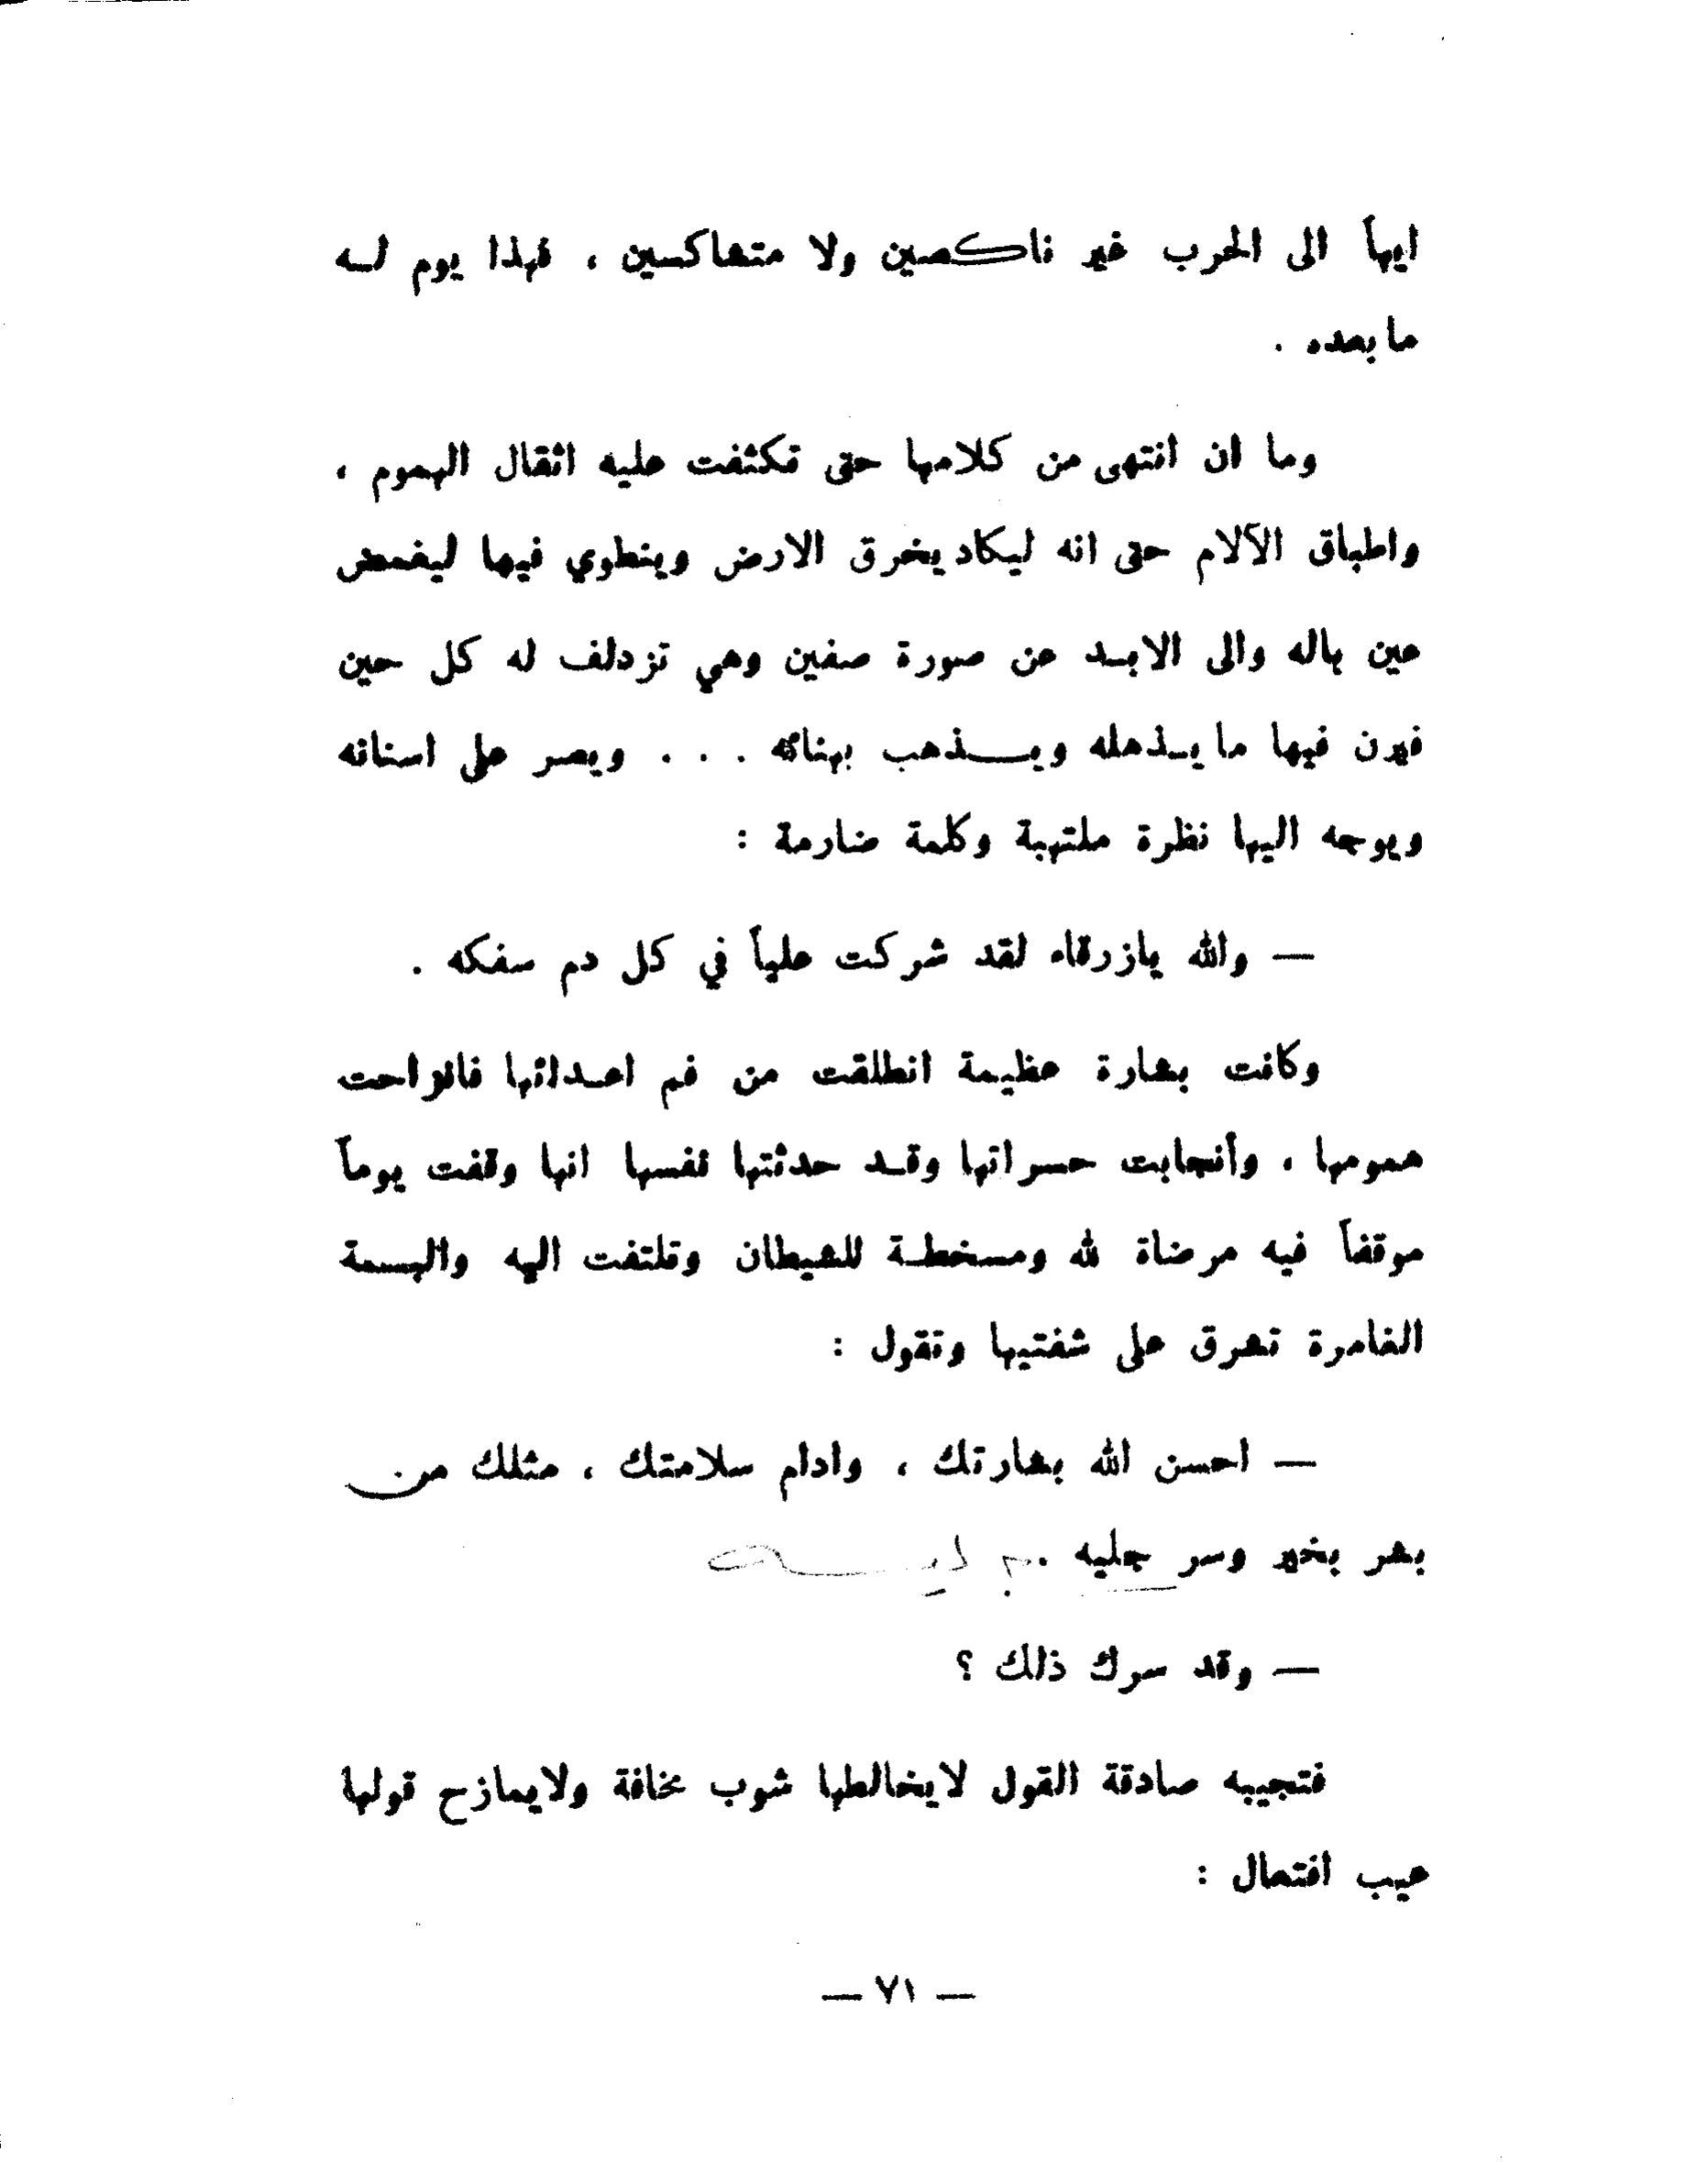 ايهاً الى الحرب غير ناكصين ولا متشاكسين ، فهذا يوم لـه
ما بعده .
وما ان انتهى من كلامها حتى تكثفت عليه اثقال الهموم ،
واطباق الآلام حتى انه ليكاد يخرق الارض وينطوي فيها ليغمض
عين باله والى الابـد عن صورة صفين وهي تزدلف له كل حين
فيرن فيها ما يـذهله ويـــذهب بهنائه . . . ويصر على اسنانه
ويوجه اليها نظرة ملتهبة وكلمة ضارمة :
— والله يازرقاء لقد شركت علياً في كل دم سفكه .
وكانت بشارة عظيمة انطلقت من فم اعـدائها فانزاحت
همومها ، وأنجابت حسراتها وقـد حدثتها نفسها انها وقفت يوماً
موقفاً فيه مرضاة لله ومسخطـة للشيطان وتلتفت اليه والبسمة
الغامرة تشرق على شفتيها وتقول :
— احسن الله بشارتك ، وادام سلامتك ، مثلك من
بشر بخير وسر جليه .
— وقد سرك ذلك ؟
فتجيبه صادقة القول لايخالطها شوب مخافة ولايمازح قولها
عيب افتعال :
— ٧١ —